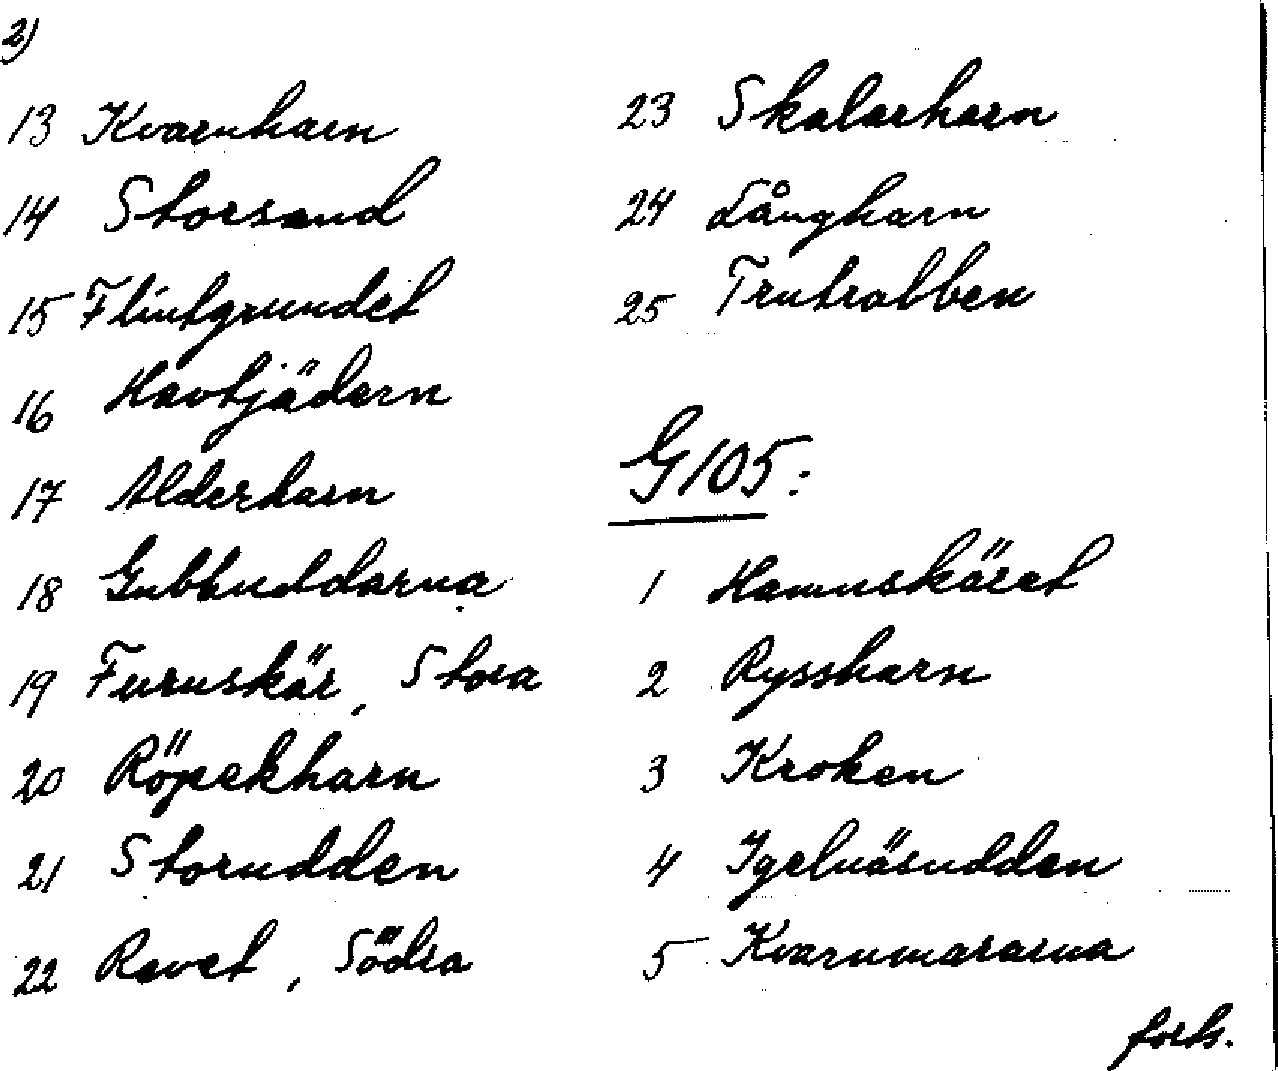 2)
13 Kvarnharn
14 Storsand
15 Flintgrundet
16 Havtjädern
17 Alderharn
18 Gubbuddarna
19 Furuskär, Stora
20 Röpekharn
21 Storudden
22 Revet, Södra
23 Skalarharn
24 Långharn
25 Trutrabben
G105:
1 Hamnskäret
2 Ryssharn
3 Kroken
4 Igelnäsudden
5 Kvarnmararna
forts.